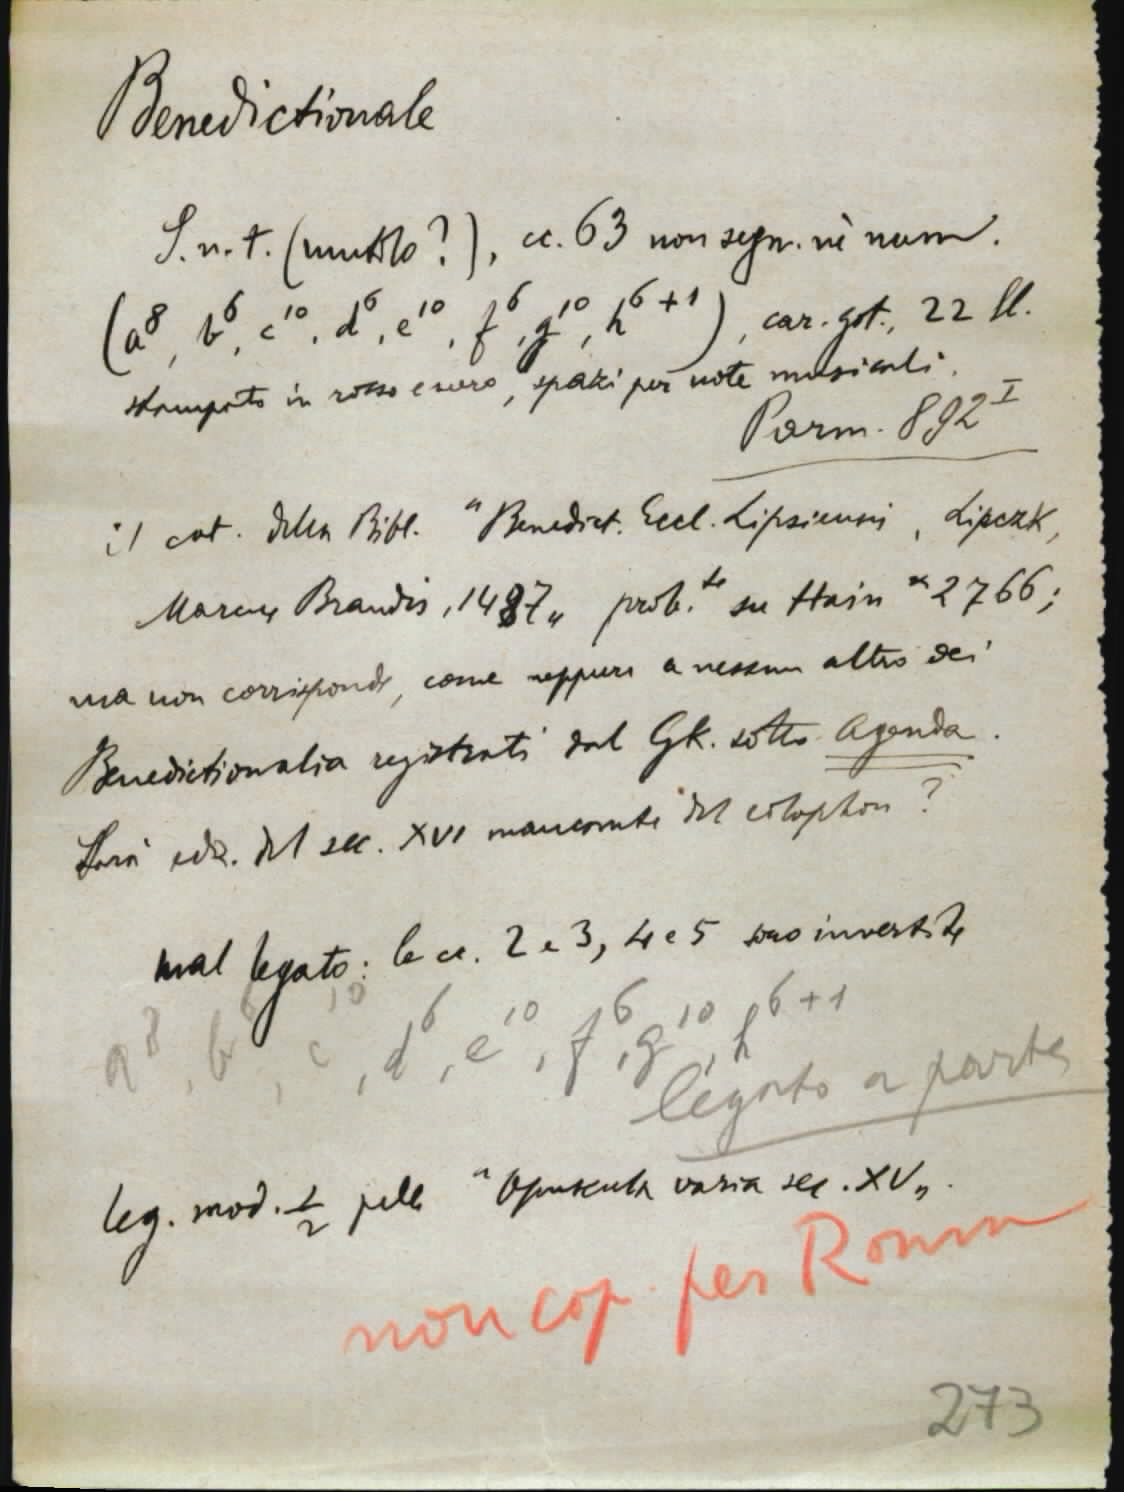 Benedictionale
S.n.t. (mutilo?), cc. 63 non segn. nè num.
(a⁸, b⁶, c¹⁰, d⁶, e¹⁰, f⁶, g¹⁰, h⁶⁺¹), car. got., 22 ll.
stampato in rosso e nero, spazi per note musicali.
Parm. 892ᴵ
il cat. della Bibl. "Benedict. Eccl. Lipsiensis, Lipczk,
Marcus Brandis, 1487„ prob.te su Hain *2766;
ma non corrisponde, come neppure a nessun altro dei
Benedictionalia registrati dal GK. sotto Agenda.
Sarà ediz. del sec. XVI mancante del colophon?
mal legato: le cc. 2 e 3, 4 e 5 sono invertite
a⁸, b⁶, c¹⁰, d⁶, e¹⁰, f⁶, g¹⁰, h⁶⁺¹
legato a parte
leg. mod. ½ pelle "Opuscula varia sec. XV„.
non cop. per Roma
273